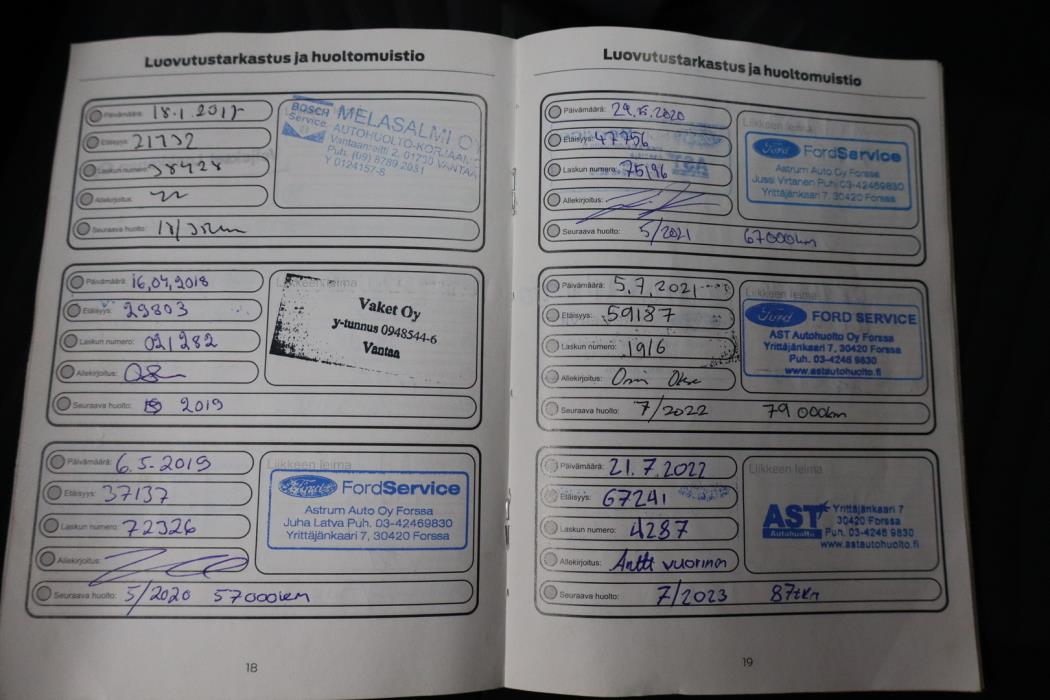 Luovutustarkastus ja huoltomuistio
Päivämäärä: 18.1.2017
Etäisyys: 21732
Laskun numero: 38428
Allekirjoitus:
Seuraava huolto:
BOSCH Service MELASALMI O
AUTOHUOLTO-KORJAAMO
Vantaanreitti 2, 01730 VANTAA
Puh. (09) 8789 2931
Y 0124157-8
Päivämäärä: 16,04,2018
Etäisyys: 29803
Laskun numero: 021282
Allekirjoitus:
Seuraava huolto: 2019
Liikkeen leima
Vaket Oy
y-tunnus 0948544-6
Vantaa
Päivämäärä: 6.5.2019
Etäisyys: 37137
Laskun numero: 72326
Allekirjoitus:
Seuraava huolto: 5/2020 57000km
Liikkeen leima
Ford FordService
Astrum Auto Oy Forssa
Juha Latva Puh. 03-42469830
Yrittäjänkaari 7, 30420 Forssa
18
Luovutustarkastus ja huoltomuistio
Päivämäärä: 29.5.2020
Etäisyys: 47756
Laskun numero: 75196
Allekirjoitus:
Seuraava huolto: 5/2021 67000km
Liikkeen leima
Ford FordService
Astrum Auto Oy Forssa
Jussi Virtanen Puh. 03-42469830
Yrittäjänkaari 7, 30420 Forssa
Päivämäärä: 5.7.2021
Etäisyys: 59187
Laskun numero: 1916
Allekirjoitus:
Seuraava huolto: 7/2022 79000km
Liikkeen leima
Ford FORD SERVICE
AST Autohuolto Oy Forssa
Yrittäjänkaari 7, 30420 Forssa
Puh. 03-4246 9830
www.astautohuolto.fi
Päivämäärä: 21.7.2022
Etäisyys: 67241
Laskun numero: 4287
Allekirjoitus: Antti Vuorinen
Seuraava huolto: 7/2023 87tkm
Liikkeen leima
AST Autohuolto
Yrittäjänkaari 7
30420 Forssa
Puh. 03-4246 9830
www.astautohuolto.fi
19